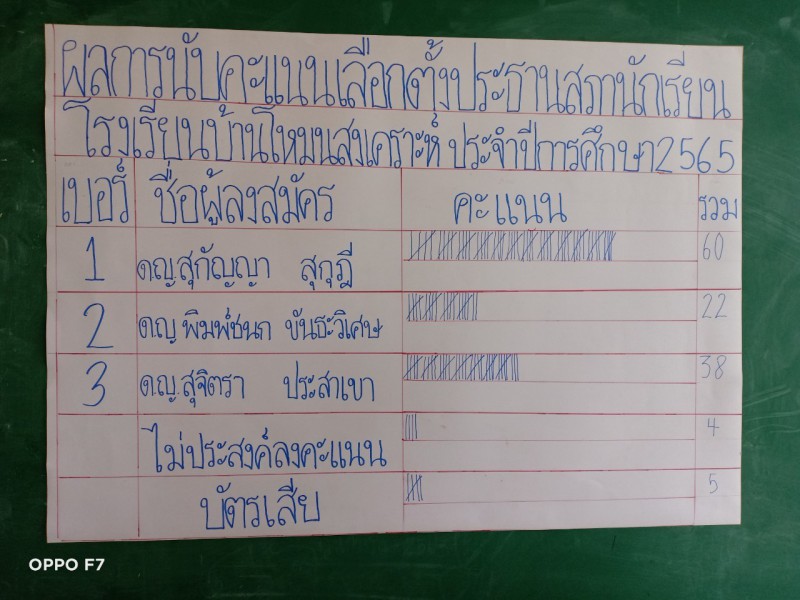 ผลการนับคะแนนเลือกตั้งประธานสภานักเรียน
โรงเรียนบ้านโหมนสงเคราะห์ ประจำปีการศึกษา2565
เบอร์ ชื่อผู้ลงสมัคร คะแนน รวม
1 ดญสุกัญญา สุกุฎี 60
2 ดญพิมพ์ชนก ขันธะวิเศษ 22
3 ดญสุจิตรา ประสาเขา 38
ไม่ประสงค์ลงคะแนน 4
บัตรเสีย 5
OPPO F7